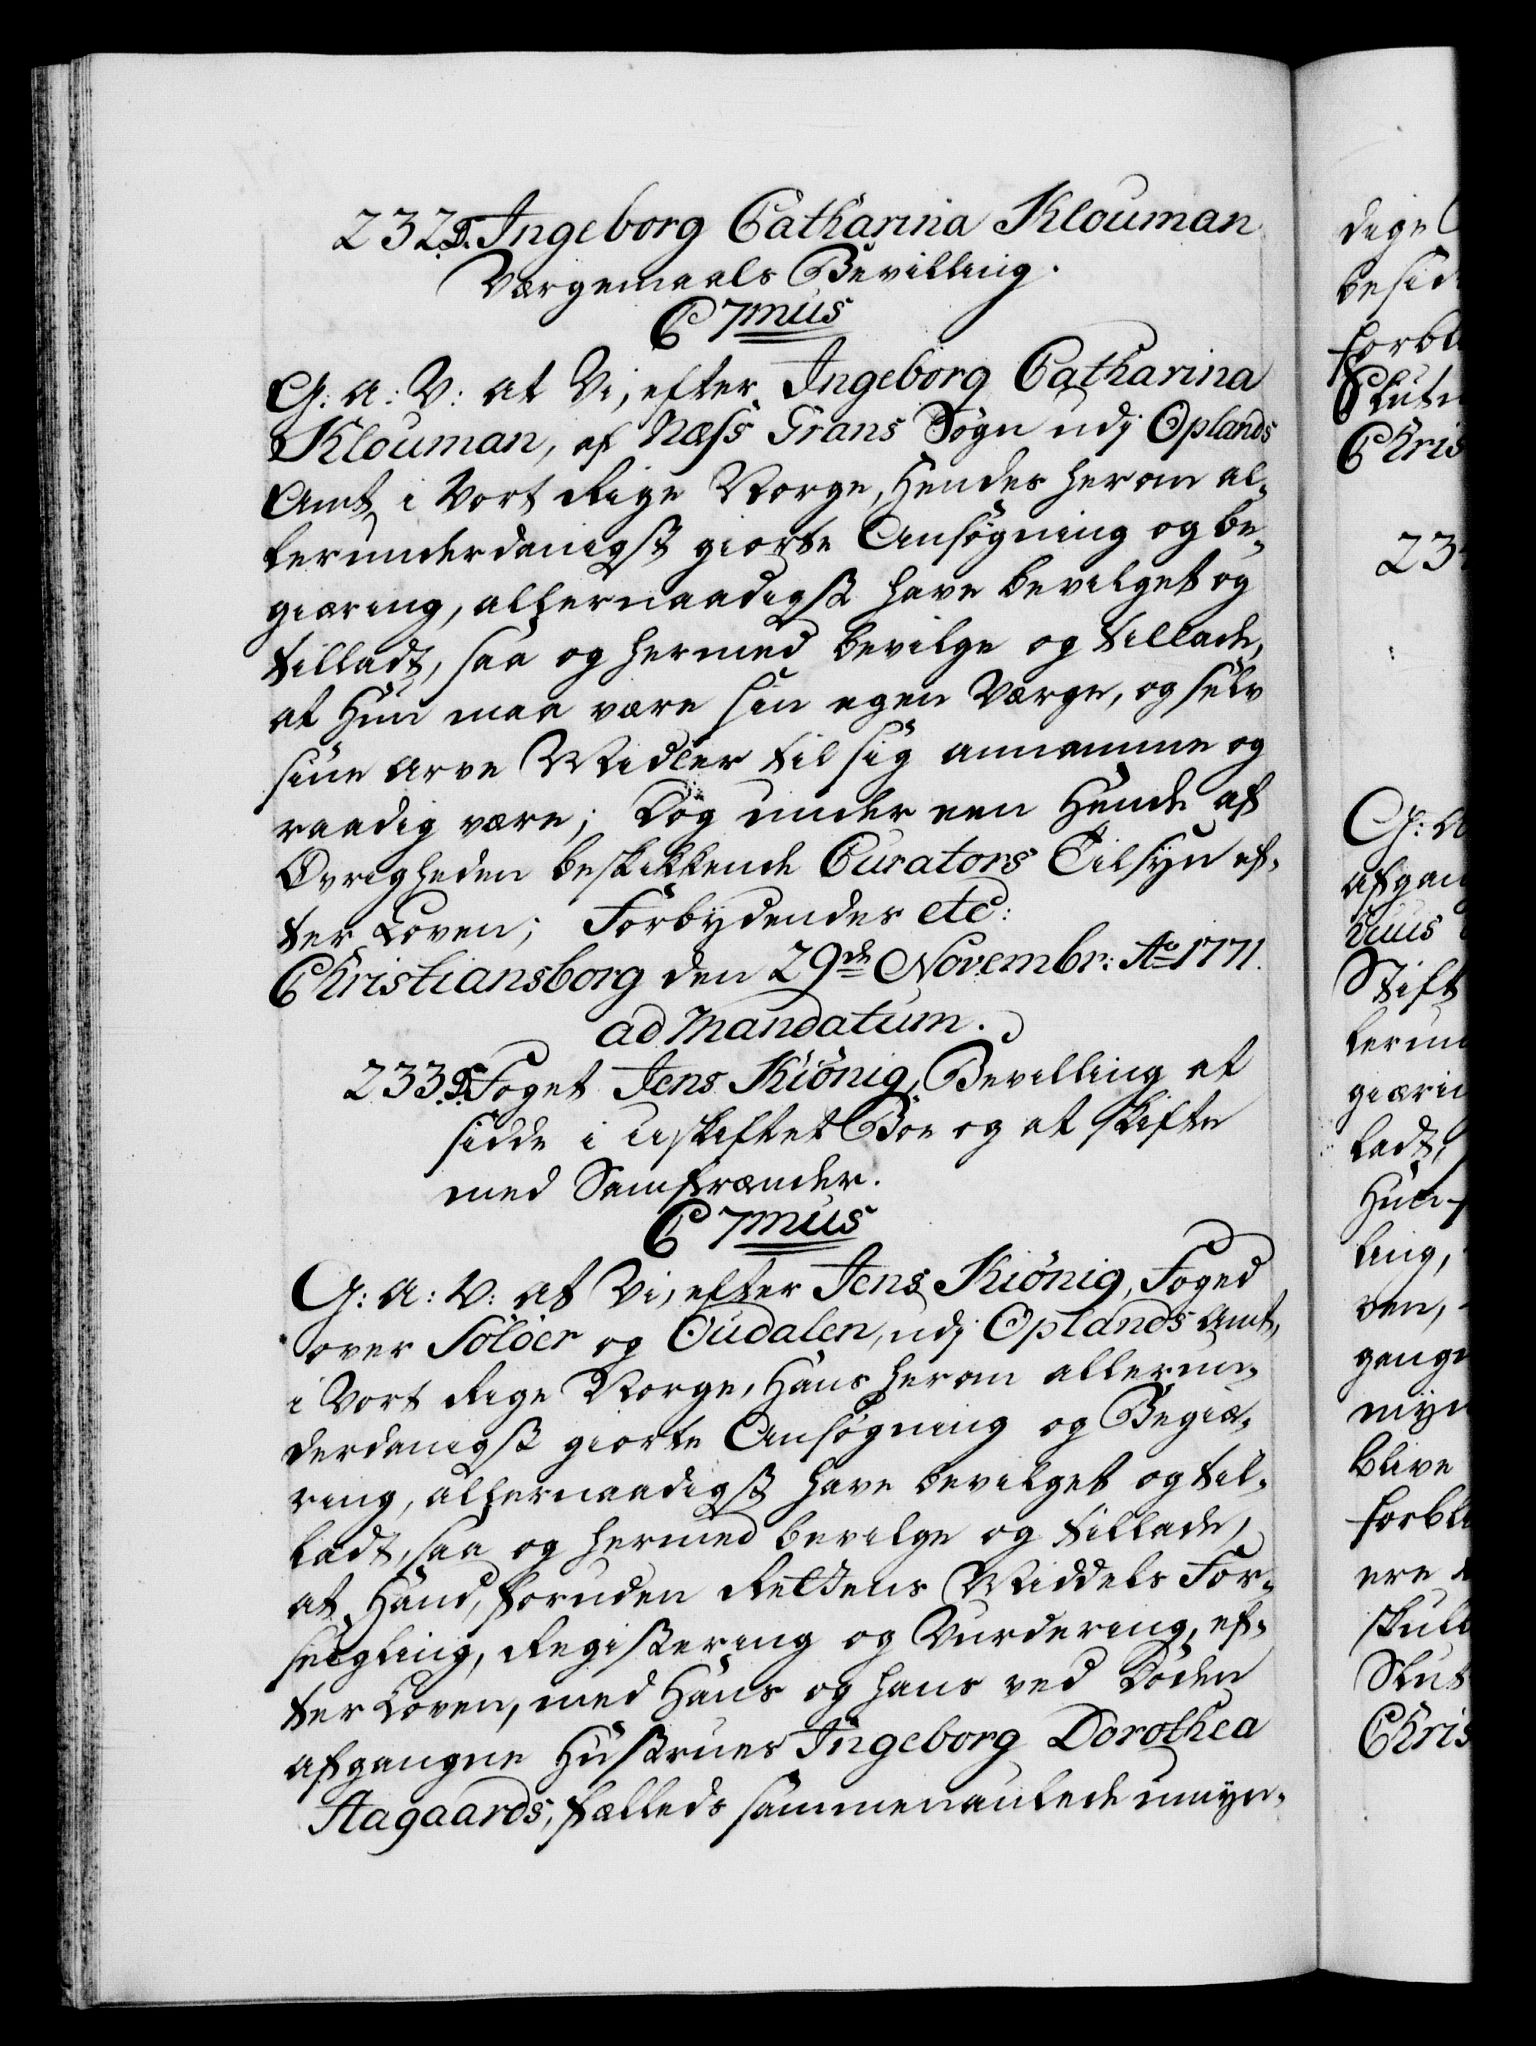 232. D. Ingeborg Catharina Klouman
Værgemaals Bevilling.
C 7mus
G: A: V: at Vi, efter Ingeborg Catharina
Klouman, af Næss Grans Sogn udj Oplands
Amt i Vort Rige Norge, Hendes herom al-
lerunderdanigst giorte Ansøgning og be-
giæring, allernaadigst have bevilget og
tilladt, saa og hermed bevilge og tillade,
at Hun maa være sin egen Værge, og selv
sine Arve Midler til sig annamme og
raadig være; Dog under een Hende af
Øvrigheden beskikkende Curators Tilsyn ef-
ter Loven; Forbydendes etc:
Christiansborg den 29de Novembr: Ao 1771.
ad Mandatum.
233. D. Foget Jens Kiönig, Bevilling at
sidde i uskiftet Boe og at skifte
med Samfrænder.
C 7mus
G: A: V: at Vi, efter Jens Kiönig, Foged
over Solöer og Oudalen, udj Oplands Amt,
i Vort Rige Norge, Hans herom allerun-
derdanigst giorte Ansøgning og Begiæ-
ring, allernaadigst have bevilget og til-
ladt, saa og hermed bevilge og tillade,
at Hand, foruden Rettens Middels For-
seigling, Registering og Vurdering, ef-
ter Loven, med Hans og hans ved Døden
afgangne Hustrues Ingeborg Dorothea
Aagaards, fælleds sammenaulede umyn-
dige
beside
forbl
Slutn
Chris
23
G: A
afgan
Stift
lerun
giærin
ladt,
Hun
ling,
ven,
gange
myn
blive
forbl
ere
skull
Slut
Chris